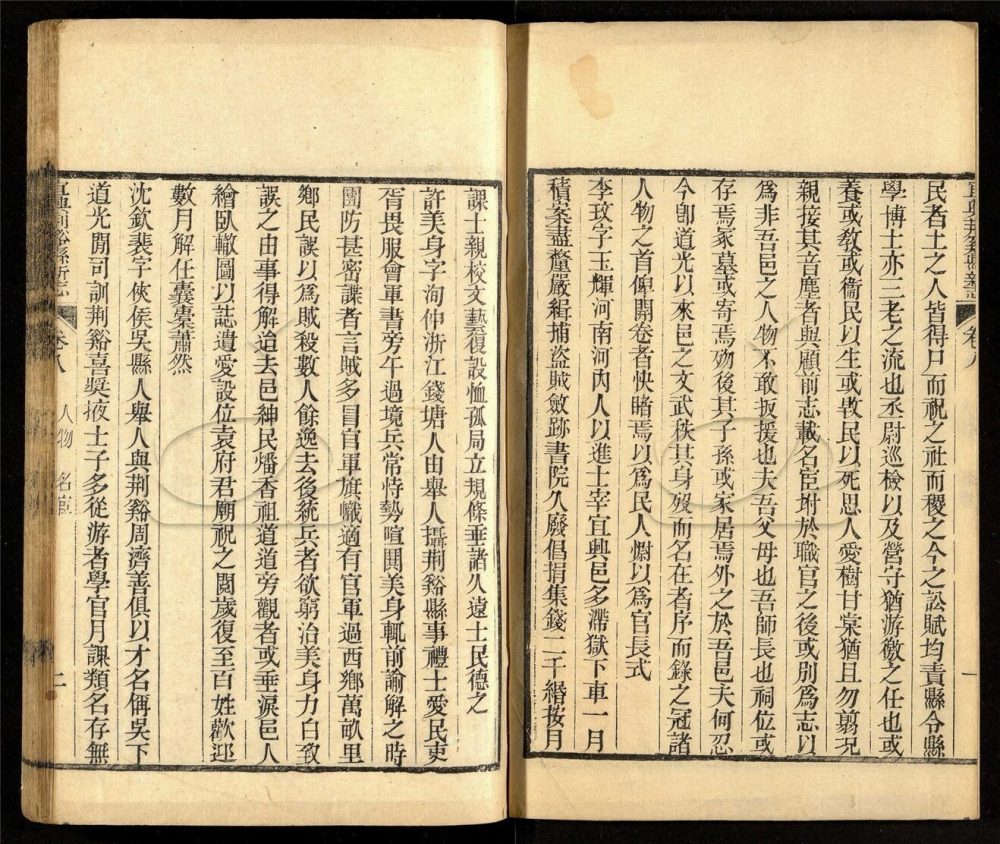 宜興荊谿縣新志 卷八 一
民者土之人皆得尸而祝之社而稷之今之訟賦均責縣令縣
學博士亦三老之流也丞尉巡檢以及營守猶游徼之任也或
養或教或衞民以生或敃民以死思人愛樹甘棠猶且勿翦況
親接其音塵者與顧前志載名宦坿於職官之後或別爲志以
爲非吾邑之人物不敢扳援也夫吾父母也吾師長也祠位或
存焉冢墓或寄焉歾後其子孫或家居焉外之於吾邑夫何忍
今卽道光以來邑之文武秩其身歿而名在者序而錄之冠諸
人物之首俾開卷者快睹焉以爲民人慰以爲官長式
李玟字玉輝河南河內人以進士宰宜興邑多滯獄下車一月
積案盡釐嚴緝捕盜賊斂跡書院久廢倡捐集錢二千緡按月
課士親校文藝復設恤孤局立規條垂諸久遠士民德之
許美身字洵仲浙江錢塘人由舉人攝荊谿縣事禮士愛民吏
胥畏服會軍書旁午過境兵常恃勢喧鬨美身輒前諭解之時
團防甚密諜者言賊多冒官軍旗幟適有官軍過西鄉萬畝里
鄉民誤以爲賊殺數人餘逸去後統兵者欲窮治美身力白致
誤之由事得解迨去邑紳民燔香祖道道旁觀者或垂淚邑人
繪臥轍圖以誌遺愛設位袁府君廟祝之閱歲復至百姓歡迎
數月解仕囊橐蕭然
沈欽裴字俠侯吳縣人舉人與荊谿周濟善俱以才名偁吳下
道光閒司訓荊谿喜奬掖士子多從游者學官月課類名存無
宜興荊谿縣新志 卷八 人物 名宦 二